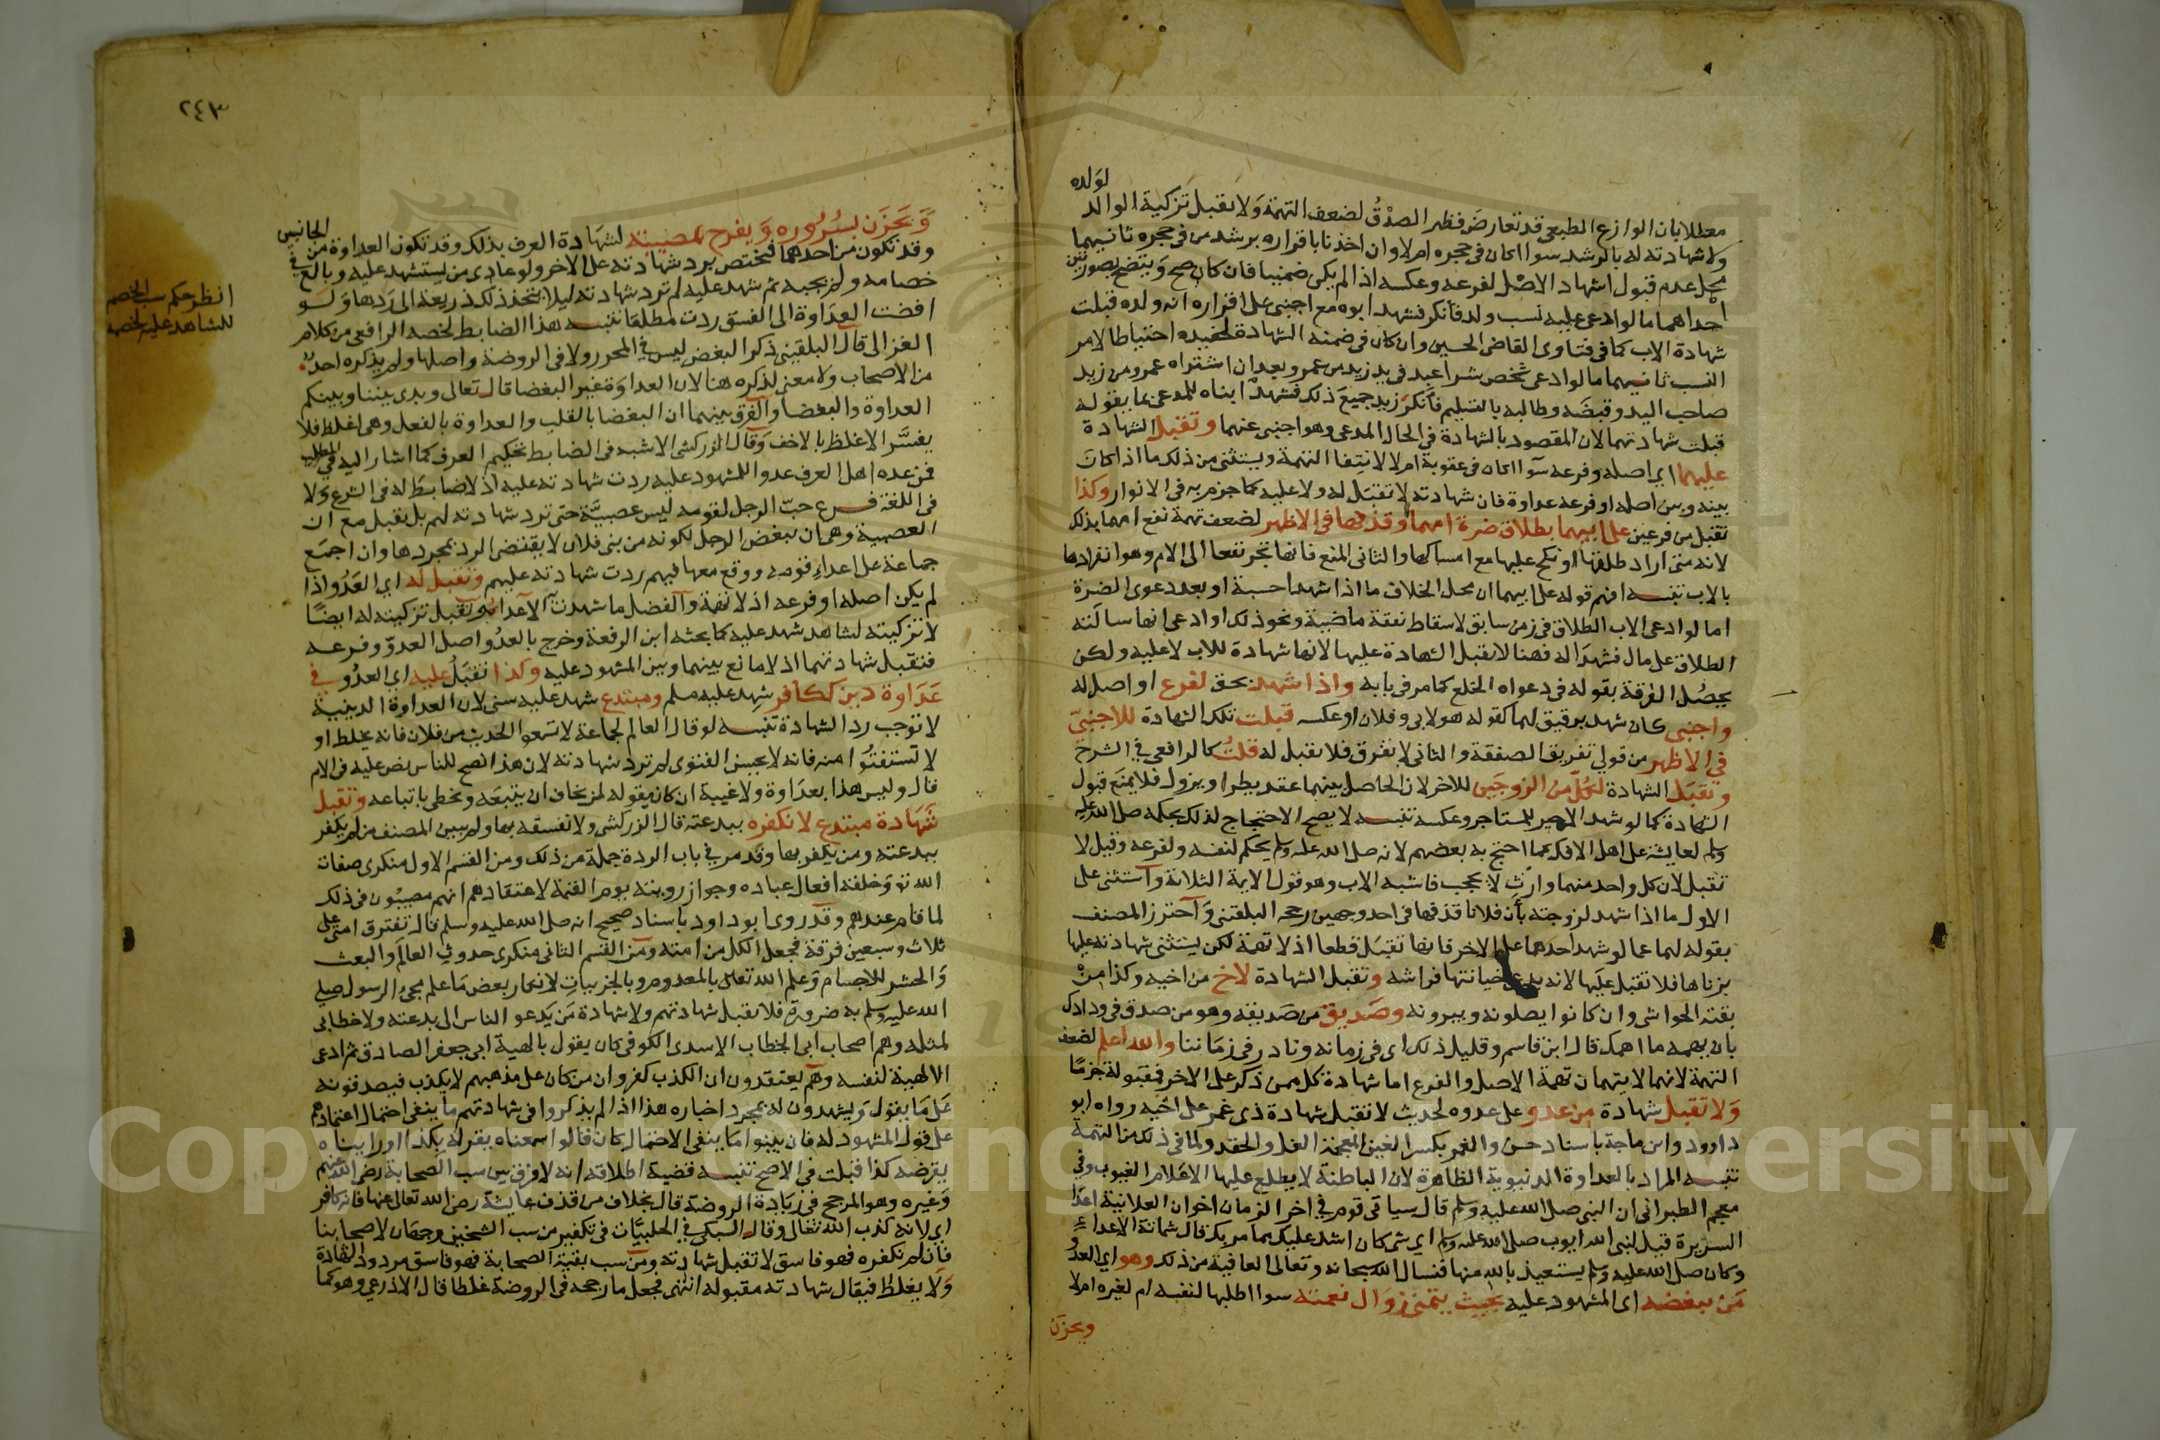 لولده
معطلا بان الوازع الطبعي قد تعارض فظهر الصدق لضعف التهمة ولا تقبل تزكية الوالد
ولا شهادته له بالرشد سوا اكان في حجره ام لا وان اخذنا باقراره برشد من في حجره ثانيهما
محل عدم قبول اشهاد الاصل لفرعه وعكسه اذا لم يكن ضمنيا فان كان صح ويتضح بصورتين
احداهما ما لو ادعى عليه نسب ولد فانكر فشهد ابوه مع اجنبي على اقراره انه ولده قبلت
شهادة الاب كما في فتاوى القاضي الحسين وان كان في ضمنه الشهادة لحفيده احتياطا لامر
النسب ثانيهما ما لو ادعى شخص شرا عبد في يد زيد من عمرو بعد ان اشتراه عمرو من زيد
صاحب اليد وقبضه وطالبه بالتسليم فانكر زيد جميع ذلك فشهد ابناه للمدعي بما يقوله
قبلت شهادتهما لان المقصود بالشهادة في الحال المدعي وهو اجنبي عنهما وتقبل الشهادة
عليهما اي اصله وفرعه سوا اكان في عقوبة ام لا لانتفا التهمة ويستثنى من ذلك ما اذا كان
بينه وبين اصله او فرعه عداوة فان شهادته لا تقبل له ولا عليه كما جزم به في الانوار وكذا
تقبل من فرعين على ابيهما بطلاق ضرة امهما او قذفها في الاظهر لضعف تهمة نفع امهما بذلك
لانه متى اراد طلقها او نكح عليها مع امساكها والثاني المنع فانها تجر نفعا الى الام وهو انفرادها
بالاب تنبيه افهم قوله على ابيهما ان محل الخلاف ما اذا شهدا حسبة او بعد دعوى الضرة
اما لو ادعى الاب الطلاق في زمن سابق لاسقاط نفقة ماضية ونحو ذلك او ادعى انها سالته
الطلاق على مال فشهدا له فهنا لا تقبل الشهادة عليها لانها شهادة للاب لا عليه ولكن
يحصل الفرقة بقوله في دعواه الخلع كما مر في بابه واذا شهد بحق لفرع او اصل له
واجنبي كان شهد برقيق لهما كقوله هو لابي وفلان او عكسه قبلت تلك الشهادة للاجنبي
في الاظهر من قولي تفريق الصفقة والثاني لا تفرق فلا تقبل له قلت كالرافعي في الشرح
وتقبل الشهادة لكل من الزوجين للاخر لان الحاصل بينهما عقد يطرا ويزول فلا يمنع قبول
الشهادة كما لو شهد الاجير للمستاجر وعكسه تنبيه لا يصح الاحتجاج لذلك بحكمه صلى الله عليه
وسلم لعايشة على اهل الافك بما احتج به بعضهم لانه صلى الله عليه وسلم يحكم لنفسه ولفرعه وقيل لا
تقبل لان كل واحد منهما وارث لا يحجب فاشبه الاب وهو قول الايمة الثلاثة واستثنى على
الاول ما اذا شهد لزوجته بان فلانا قذفها في احد وجهين رجحه البلقيني واحترز المصنف
بقوله لهما عما لو شهد احدهما على الاخر فانها تقبل قطعا اذ لا تهمة لكن يستثنى شهادته عليها
بزناها فلا تقبل عليها لانه يدعي خيانتها فراشه وتقبل الشهادة لاخ من اخيه وكذا من
بقية الحواشي وان كانوا يصلونه ويبرونه وصديق من صديقه وهو من صدق في ودادك
بان يهمه ما اهمك قال ابن قاسم وقليل ذلك اي في زمانه ونادر في زماننا والله اعلم لضعف
التهمة لانهما لا يتهمان تهمة الاصل والفرع اما شهادة كل ممن ذكر على الاخر فمقبولة جزما
ولا تقبل شهادة من عدو على عدوه لحديث لا تقبل شهادة ذي غمر على اخيه رواه ابو
داوود وابن ماجة باسناد حسن والغمر بكسر الغين المعجمة الغل والحقد ولما في ذلك من التهمة
تنبيه المراد بالعداوة الدنيوية الظاهرة لان الباطنة لا يطلع عليها الا علام الغيوب وفي
معجم الطبراني ان النبي صلى الله عليه وسلم قال سياتي قوم في اخر الزمان اخوان العلانية اعدا
السريرة قيل لنبي الله ايوب صلى الله عليه وسلم اي شي كان اشد عليك مما مر بك قال شماتة الاعداء
وكان صلى الله عليه وسلم يستعيذ بالله منها فنسال الله سبحانه وتعالى العافية من ذلك وهو اي العدو
من يبغضه اي المشهود عليه بحيث يتمنى زوال نعمته سوا اطلبها لنفسه ام لغيره ام لا
ويحزن
٢٤٣
ويحزن بسروره ويفرح بمصيبته لشهادة العرف بذلك وقد تكون العداوة من الجانبين
وقد تكون من احدهما فيختص برد شهادته على الاخر ولو عادى من يستشهد عليه وبالغ في
خصامه ولم يجبه ثم شهد عليه لم ترد شهادته ليلا يتخذ ذلك ذريعة الى ردها ولو
افضت العداوة الى الفسق ردت مطلقا تنبيه هذا الضابط لخصه الرافعي من كلام
الغزالي قال البلقيني ذكر البغض ليس في المحرر ولا في الروضة واصلها ولم يذكره احد
من الاصحاب ولا معنى لذكره هنا لان العداوة غير البغضا قال تعالى وبدى بيننا وبينكم
العداوة والبغضا والفرق بينهما ان البغضا بالقلب والعداوة بالفعل وهي اغلظ فلا
يفسر الاغلظ بالاخف وقال الزركشي الاشبه في الضابط تحكيم العرف كما اشار اليه في المطلب
فمن عده اهل العرف عدوا للمشهود عليه ردت شهادته عليه اذ لا ضابط له في الشرع ولا
في اللغة فرع حب الرجل لقومه ليس عصبية حتى ترد شهادته لهم بل تقبل مع ان
العصبية وهي ان يبغض الرجل لكونه من بني فلان لا يقتضي الرد بمجردها وان اجمع
جماعة على اعداء قومه ووقع معها فيهم ردت شهادته عليهم وتقبل له اي العدو اذا
لم يكن اصله او فرعه اذ لا تهمة والفضل ما شهدت به الاعدا وتقبل تزكيته له ايضا
لا تزكيته لشاهد شهد عليه كما بحثه ابن الرفعة وخرج بالعدو اصل العدو وفرعه
فتقبل شهادتهما اذ لا مانع بينهما وبين المشهود عليه وكذا تقبل عليه اي العدو في
عداوة دين ككافر شهد عليه مسلم ومبتدع شهد عليه سني لان العداوة الدينية
لا توجب رد الشهادة تنبيه لو قال العالم لجماعة لا تسمعوا الحديث من فلان فانه يخلط او
لا تستفتوا منه فانه لا يحسن الفتوى لم ترد شهادته لان هذا نصح للناس نص عليه في الام
قال وليس هذا بعداوة ولا غيبة ان كان يقوله لمن يخاف ان يتبعه ويخطي باتباعه وتقبل
شهادة مبتدع لا نكفره ببدعته قال الزركشي ولا نفسقه بها ولم يبين المصنف من لم يكفر
ببدعته ومن يكفر بها وقد مر في باب الردة جملة من ذلك ومن القسم الاول منكري صفات
الله تعالى وخلقه افعال عباده وجواز رويته يوم القيمة لاعتقادهم انهم مصيبون في ذلك
لما قام عندهم وقد روى ابو داود باسناد صحيح انه صلى الله عليه وسلم قال تفترق امتي على
ثلاث وسبعين فرقة فجعل الكل من امته ومن القسم الثاني منكري حدوث العالم والبعث
والحشر للاجسام وعلم الله تعالى بالمعدوم وبالجزييات لانكار بعض ما علم مجيء الرسول صلى
الله عليه وسلم به ضرورة فلا تقبل شهادتهم ولا شهادة من يدعو الناس الى بدعته ولا خطابي
لمثله وهم اصحاب ابي الخطاب الاسدي الكوفي كان يقول بالهية ابي جعفر الصادق ثم ادعى
الالهية لنفسه وهم يعتقدون ان الكذب كفر وان من كان على مذهبهم لا يكذب فيصدقونه
على ما يقول ويشهدون له بمجرد اخباره هذا اذا لم يذكروا في شهادتهم ما ينفي احتمال اعتمادهم
على قول المشهود له فان بينوا ما ينفي الاحتمال كان قالوا سمعناه يقر له بكذا او رايناه
يقرضه كذا قبلت في الاصح تنبيه قضية اطلاقه انه لا فرق بين سب الصحابة رضي الله عنهم
وغيره وهو المرجح في زيادة الروضة قال بخلاف من قذف عايشة رضي الله تعالى عنها فانه كافر
اي لانه كذب الله تعالى وقال السبكي في الحلبيات في تكفير من سب الشيخين وجهان لاصحابنا
فان لم نكفره فهو فاسق لا تقبل شهادته ومن سب بقية الصحابة فهو فاسق مردود الشهادة
ولا يغلط فيقال شهادته مقبولة انتهى فجعل ما رجحه في الروضة غلطا قال الاذرعي وهو كما
انظر حكم سب الخصم
للشاهد عليه لخصمه
Copyright © King Saud University